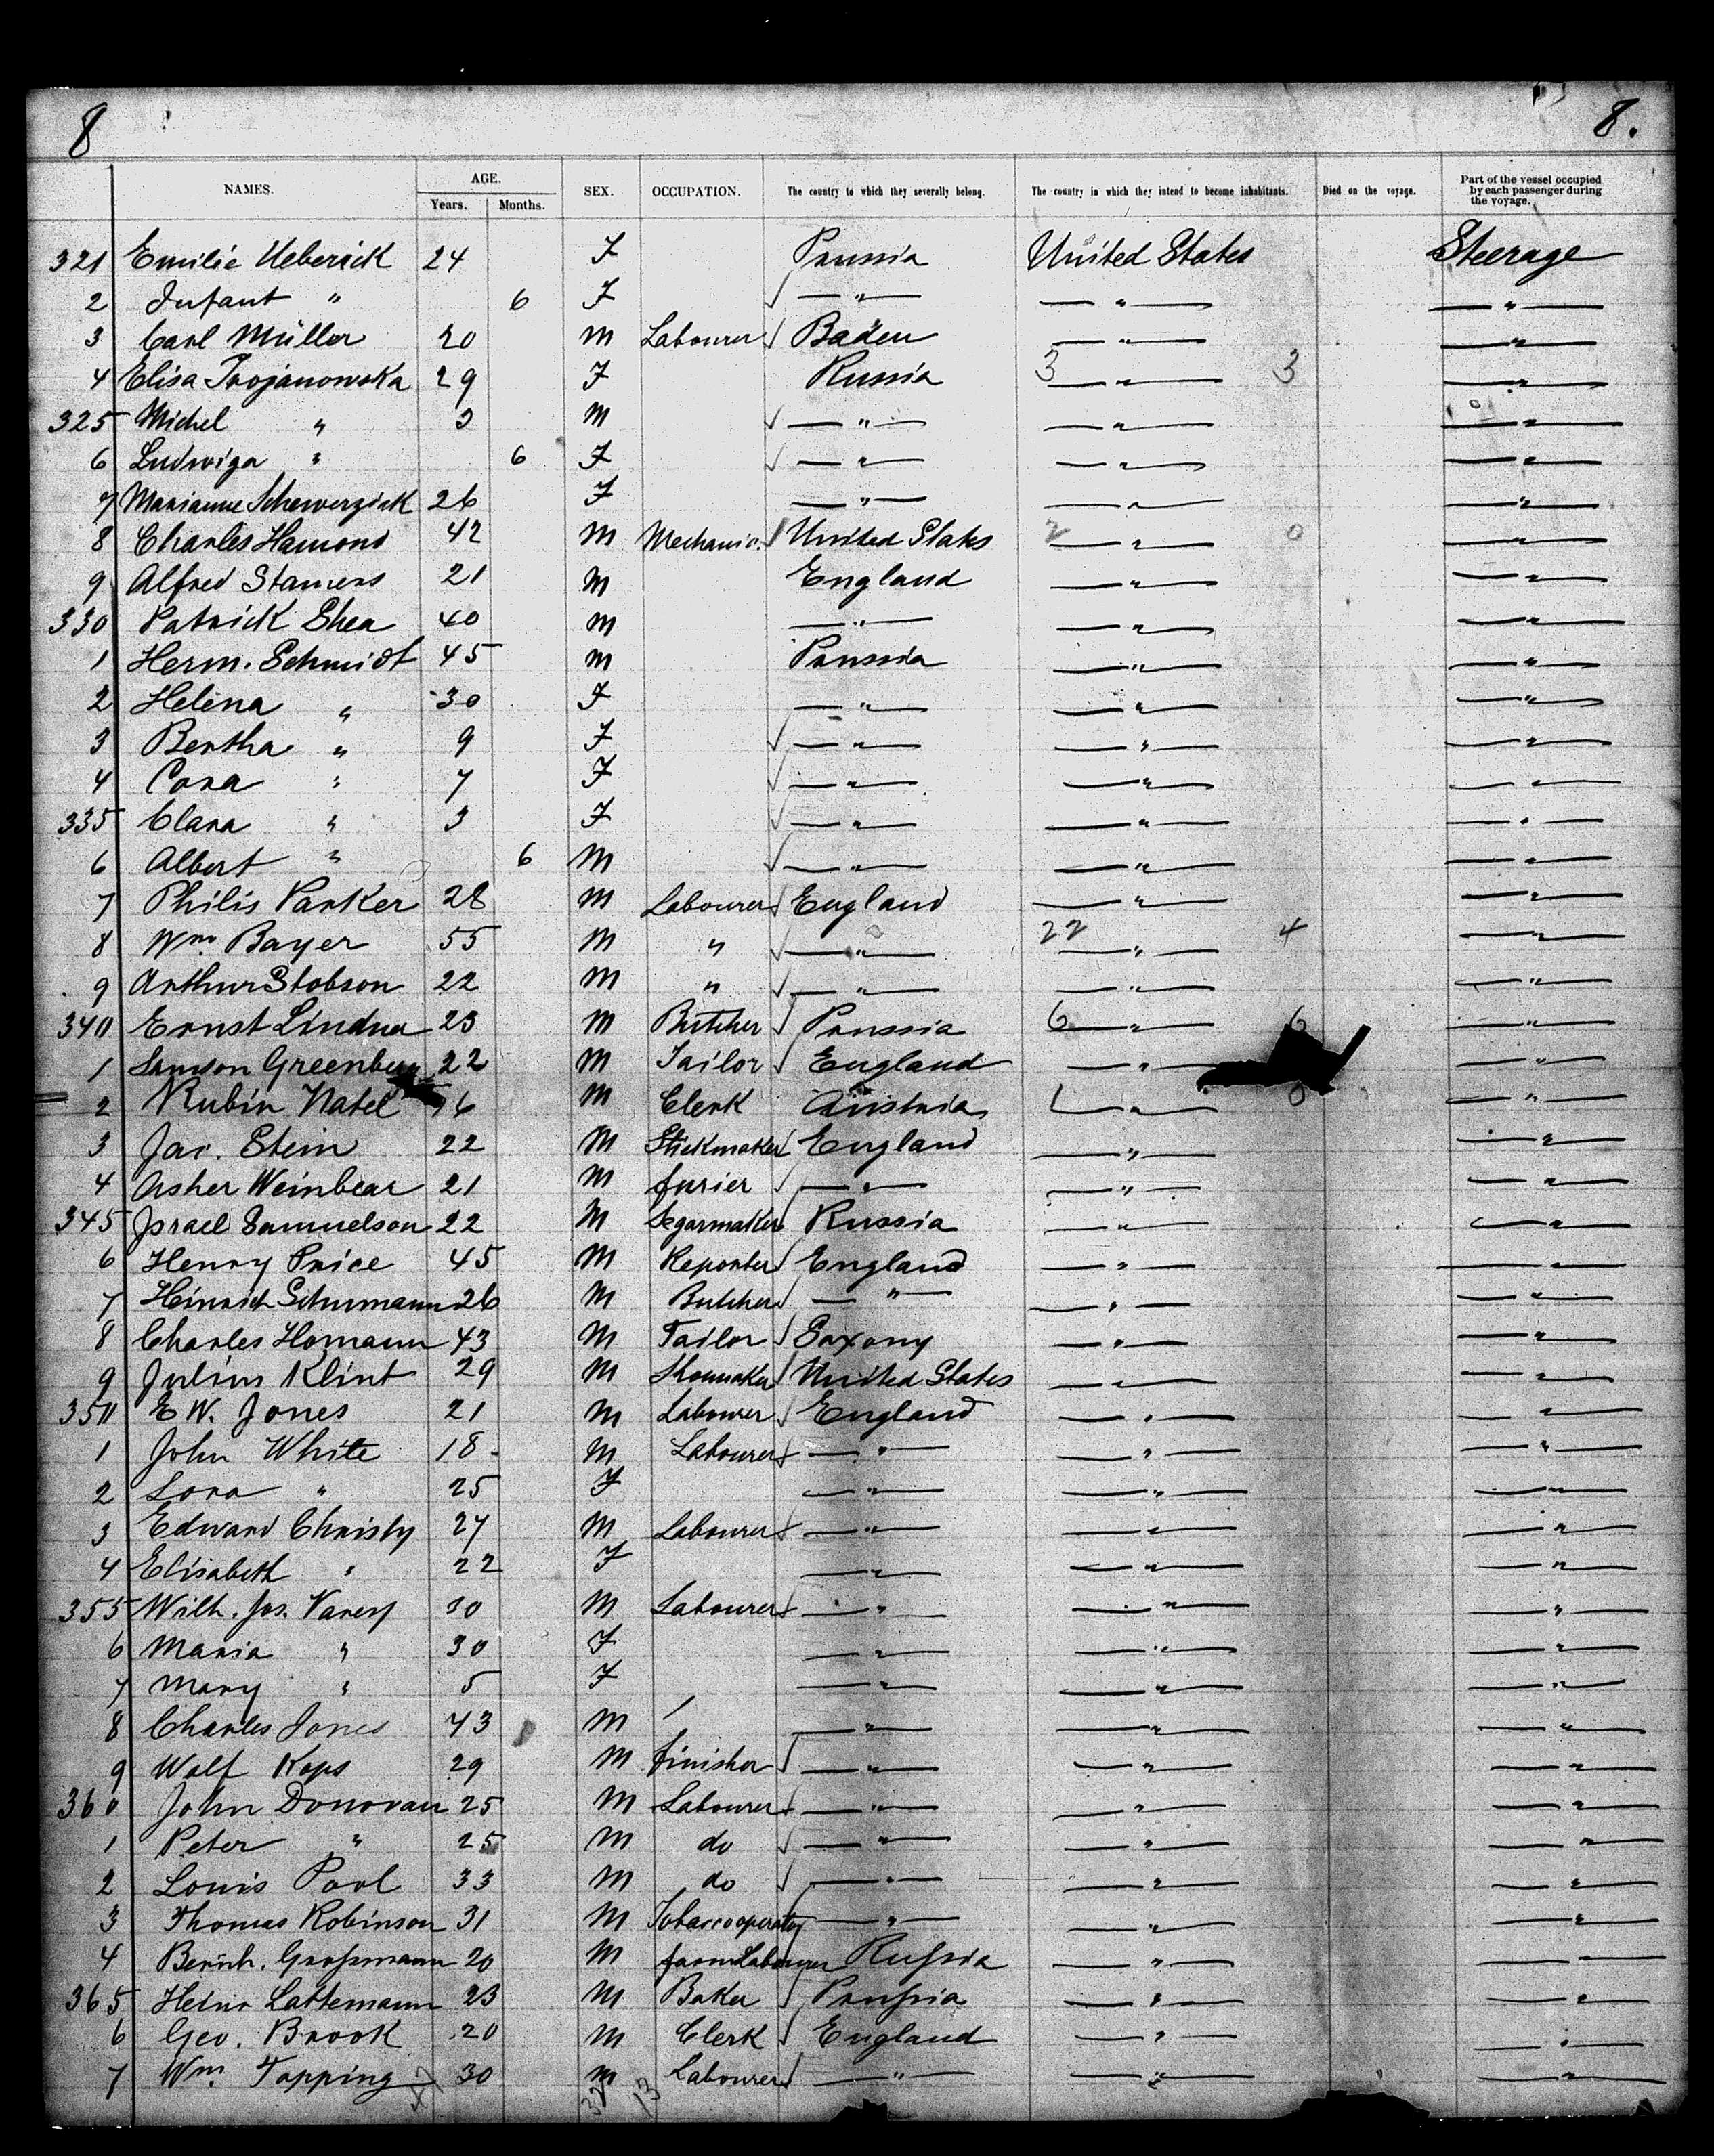 8 8.
NAMES. AGE. SEX. OCCUPATION. The country to which they severally belong. The country in which they intend to become inhabitants. Died on the voyage. Part of the vessel occupied by each passenger during the voyage.
Years. Months.
321 Emilie Ueberick 24 F Prussia United States Steerage
2 Infant " 6 F — " — — " — — " —
3 Carl Müller 20 M Labourer Baden — " — — " —
4 Elisa Trojanowska 29 F Russia 3 — " — 3 — " —
325 Michel " 3 M — " — — " — — " —
6 Ludwiga " 6 F — " — — " — — " —
7 Marianne 26 F — " — — " — — " —
8 Charles Hamond 42 M Mechanic. United States 2 — " — 0 — " —
9 Alfred Stamers 21 M England — " — — " —
330 Patrick Shea 40 M — " — — " — — " —
1 Herm. Schmidt 45 M Prussia — " — — " —
2 Helena " 30 F — " — — " — — " —
3 Bertha " 9 F — " — — " — — " —
4 Cora " 7 F — " — — " — — " —
335 Clara " 3 F — " — — " — — " —
6 Albert " 6 M — " — — " — — " —
7 Philis Parker 28 M Labourer England — " — — " —
8 Wm. Bayer 55 M " — " — 22 — " — 4 — " —
9 Arthur Stobson 22 M " — " — — " — — " —
340 Ernst Lindner 23 M Butcher Prussia 6 — " — 6 — " —
1 Samson Greenberg 22 M Tailor England — " — — " —
2 Rubin Natel 6 M Clerk Austria 1 — " — 0 — " —
3 Jac. Stein 22 M Stickmaker England — " — — " —
4 Asher Weinbear 21 M furier — " — — " — — " —
345 Israel Samuelson 22 M Segarmaker Russia — " — — " —
6 Henry Price 45 M Reporter England — " — — " —
7 Heinrich Schumann 26 M Butcher — " — — " — — " —
8 Charles Homann 43 M Tailor Saxony — " — — " —
9 Julius Klint 29 M Shoemaker United States — " — — " —
350 E W. Jones 21 M Labourer England — " — — " —
1 John White 18 - M Labourer — " — — " — — " —
2 Lora " 25 F — " — — " — — " —
3 Edward Christy 27 M Labourer — " — — " — — " —
4 Elisabeth " 22 F — " — — " — — " —
355 Wilh. Jos. Varey 30 M Labourer — " — — " — — " —
6 Maria " 30 F — " — — " — — " —
7 Mary " 5 F — " — — " — — " —
8 Charles Jones 43 M — " — — " — — " —
9 Wolf Kops 29 M finisher — " — — " — — " —
360 John Donovan 25 M Labourer — " — — " — — " —
1 Peter " 25 M do — " — — " — — " —
2 Louis Pool 33 M do — " — — " — — " —
3 Thomas Robinson 31 M Tobaccooperator — " — — " — — " —
4 Berich. Großmann 20 M farmLabourer Rußia — " — — " —
365 Heinr Lattemann 23 M Baker Prußia — " — — " —
6 Geo. Brook 20 M Clerk England — " — — " —
7 Wm. Topping 30 M Labourer — " — — " — — " —
47 32 13